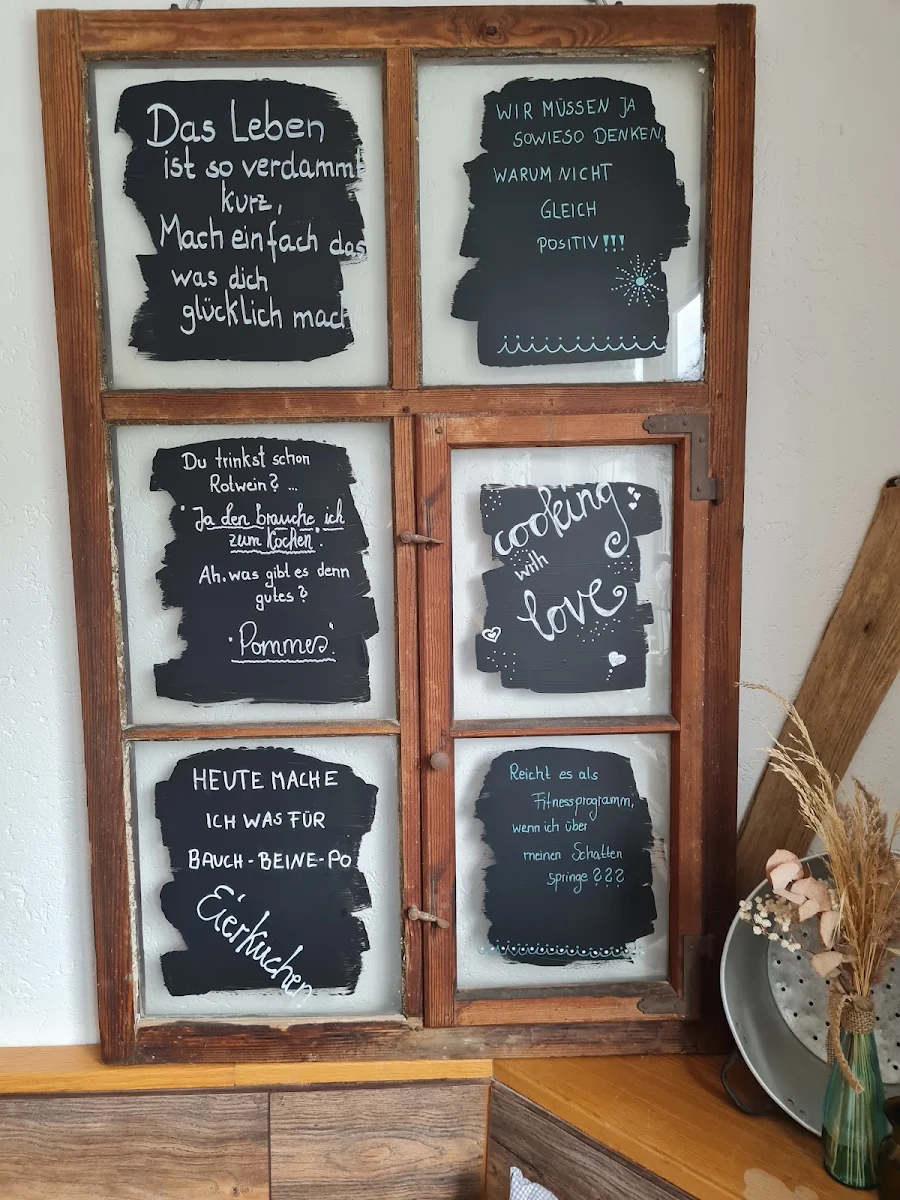 Das Leben
ist so verdammt
kurz,
Mach einfach das
was dich
glücklich mach
WIR MÜSSEN JA
SOWIESO DENKEN,
WARUM NICHT
GLEICH
POSITIV!!!
Du trinkst schon
Rotwein? ...
"Ja den brauche ich
zum Kochen".
Ah, was gibt es denn
gutes?
"Pommes"
cooking
with
love
HEUTE MACHE
ICH WAS FÜR
BAUCH-BEINE-PO
Eierkuchen
Reicht es als
Fitnessprogramm,
wenn ich über
meinen Schatten
springe ???